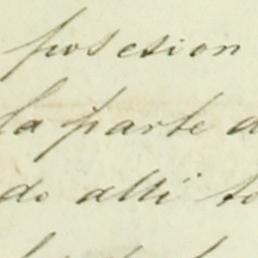 posesion
la parte d
do alli to